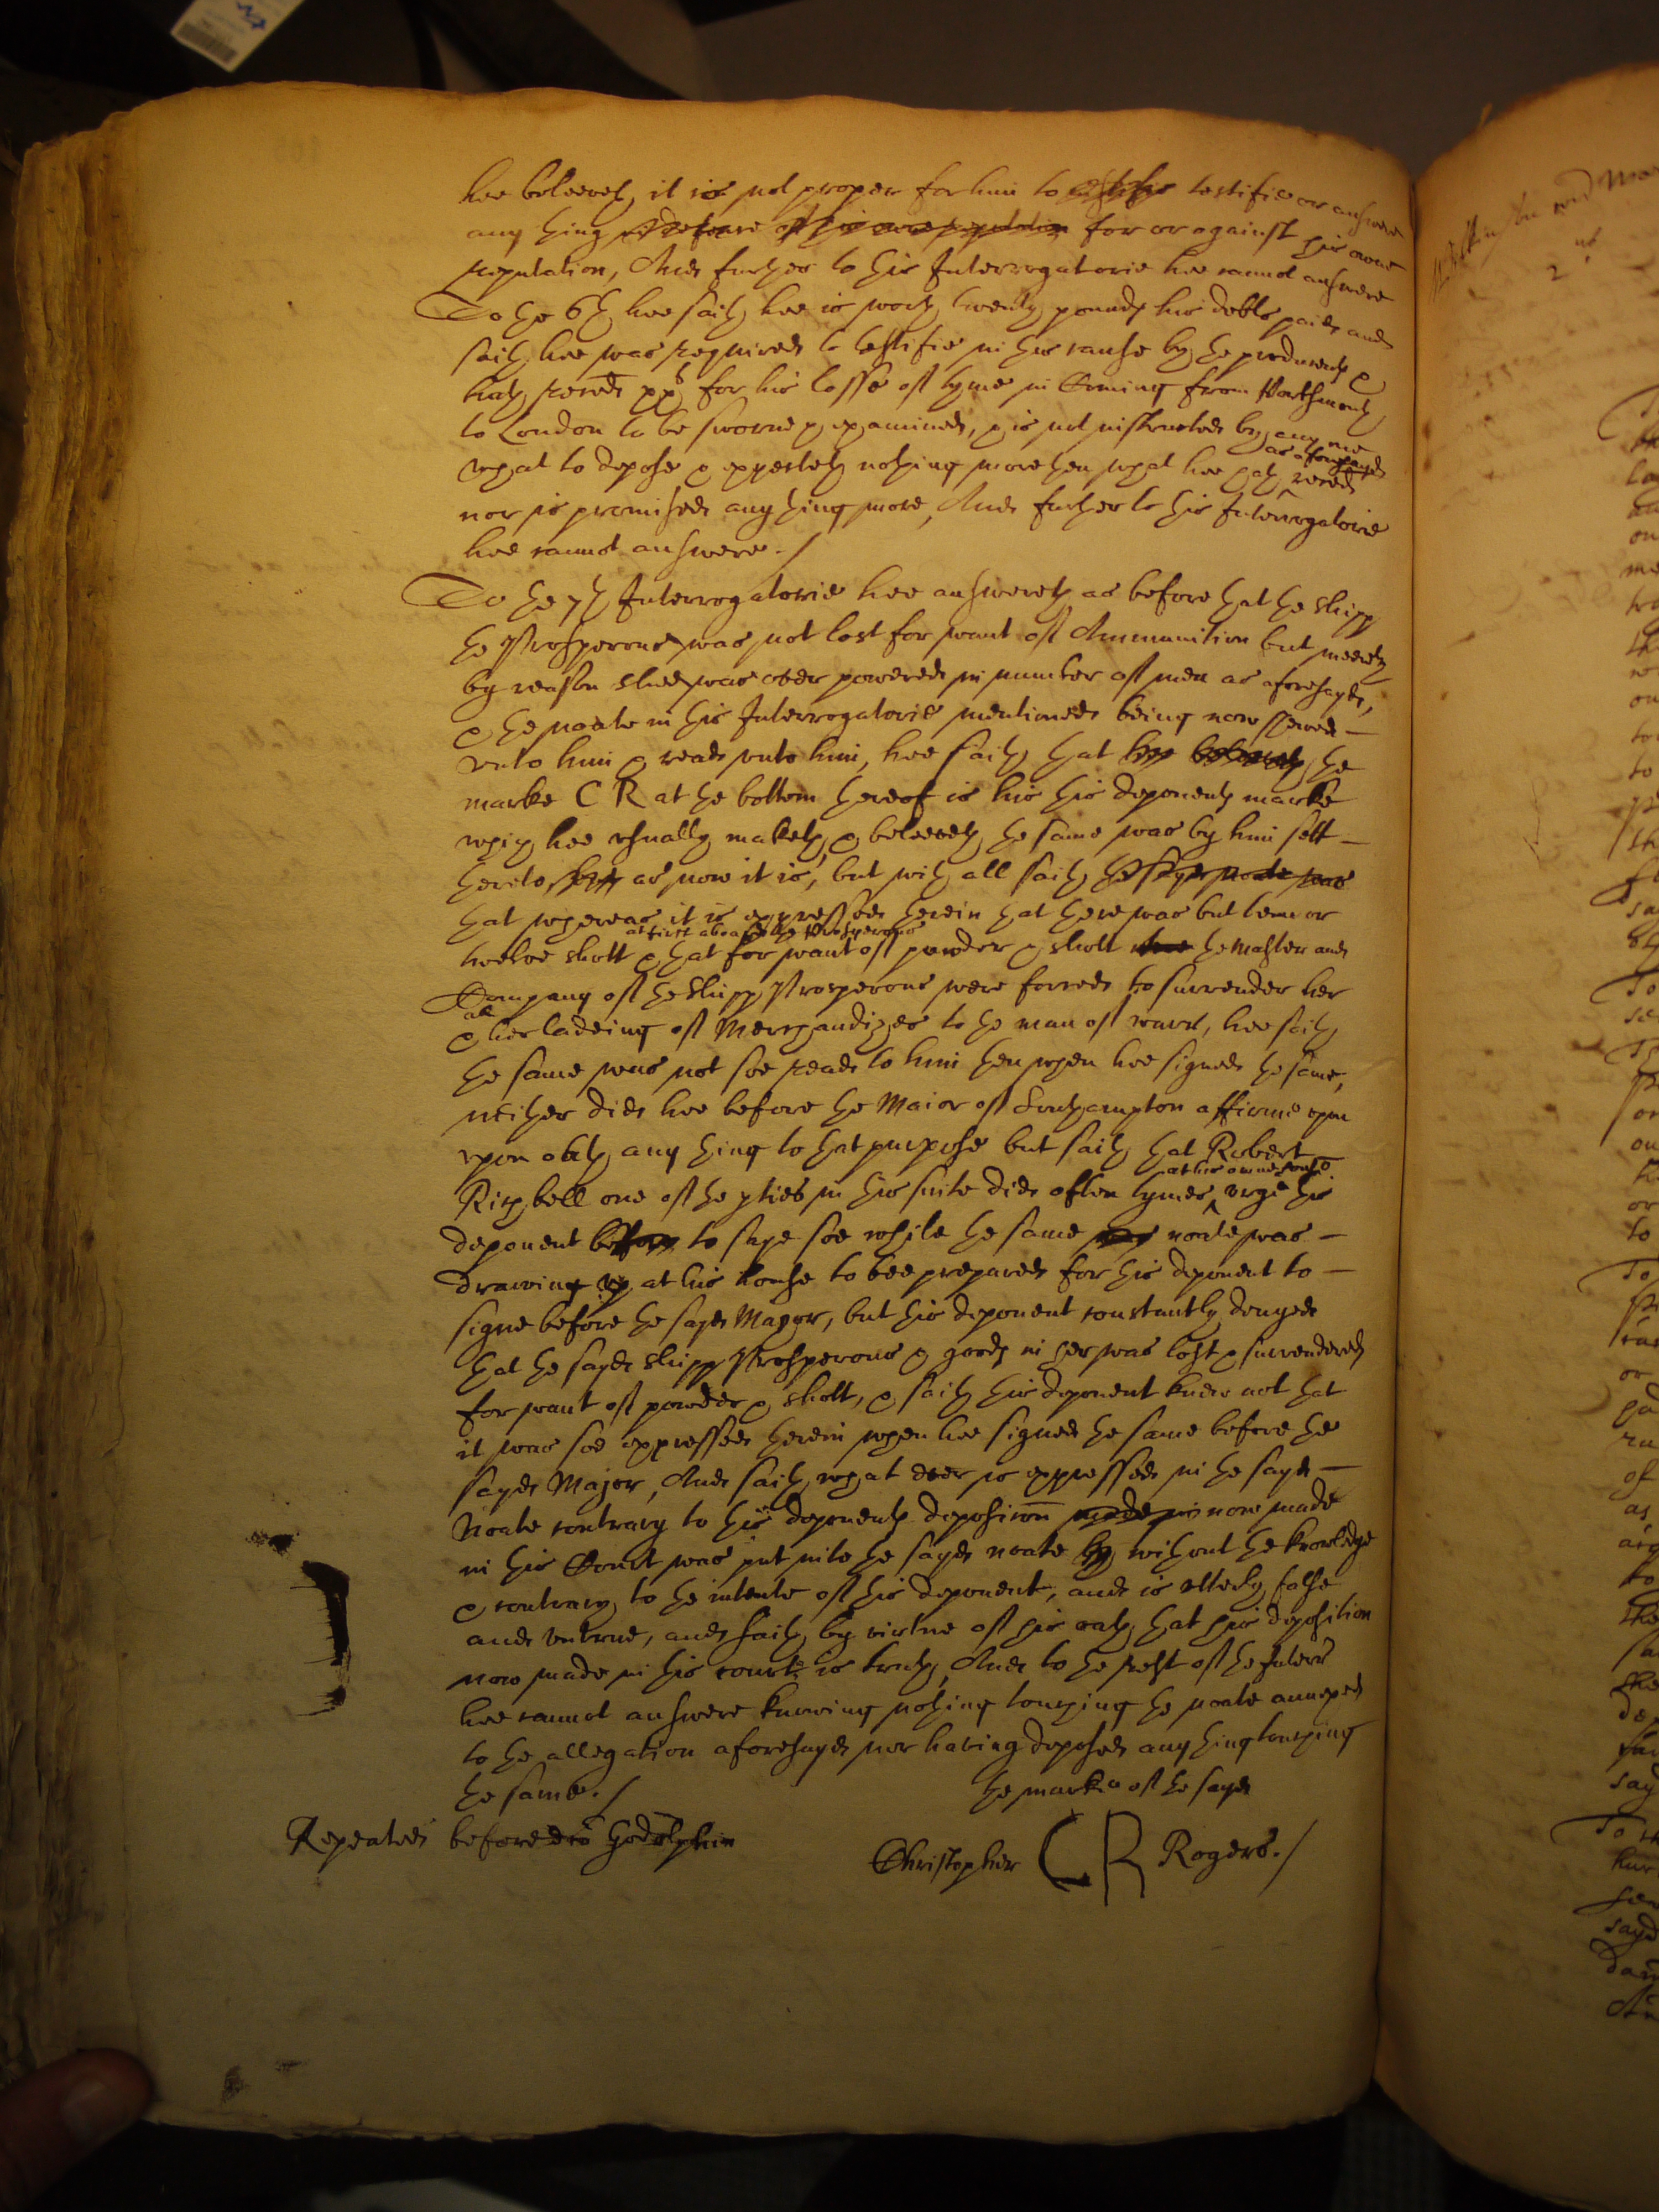 hee beleeveth it is not proper for him to testifie or answere
any thing in defence of his owne reputation for or against his owne
reputation, And further to this Interrogatorie hee cannot answere
To the 6th hee saith hee is worth twenty pounds his debts paid and
saith hee was required to testifie in this cause by the producent &
hath received for his losse of tyme in Coming from Portsmouth
to London to be sworne & examined, & is not instructed by any one
what to depose & expecteth nothing more then what hee hath as aforesayd received
nor is promised any thing more, And further to this Interrogatorie
hee cannot answere./
To the 7th Interrogatorie hee answereth as before that the shipp
the Prosperous was not lost for want of Ammunition but meerely
by reason shee was over powered in number of men as aforesayd,
& the noate in this Interrogatorie mentioned being now shewed -
unto him & read unto him, hee saith that hee beleeveth the
marke C R at the bottom thereof is his this deponents marke
which hee usually maketh, & beleeveth the same was by him sett -
thereto as now it is, but with all saith the sayd noate was
that whereas it is expressed therein that there was but tenn or
twelve shott at first aboard the Prosperous & that for want of powder & shott the Master and
Company of the Shipp Prosperous were forced to surrender her
& all her ladeing of Merchandizes to the man of warr, hee saith
the same was not soe read to him then when hee signed the same,
neither did hee before the Maior of Southampton affirme upon
upon oath any thing to that purpose but saith that Robert
Richbell one of the parties in this suite did often tymes at his owne house urge this
deponent before to saye soe while the same noate was -
drawing up at his house to bee prepared for this deponent to -
signe before the sayd Mayor, but this deponent constantly denyed
that the sayd shipp Prosperous & goods in her was lost & surrendered
for want of powder & shott, & saith this deponent knew not that
it was soe expressed therein when hee signed the same before the
sayd Major, And saith what ever is expressed in the sayd -
Noate contrary to this deponents deposicon made in now made
in this Court was put into the sayd noate by without the knowledge
& contrary to the intente of this deponent, and is utterly false
and untrue, and saith by virtue of his oath that his deposition
now made in this court is truth, And to the rest of the Interrs
hee cannot answere knowing nothing touching the noate annexed
to the allegation aforesayd nor having deposed any thing touching
the same./ the marke of the sayd
Repeated before dtor Godolphin Christopher C R Rogers./